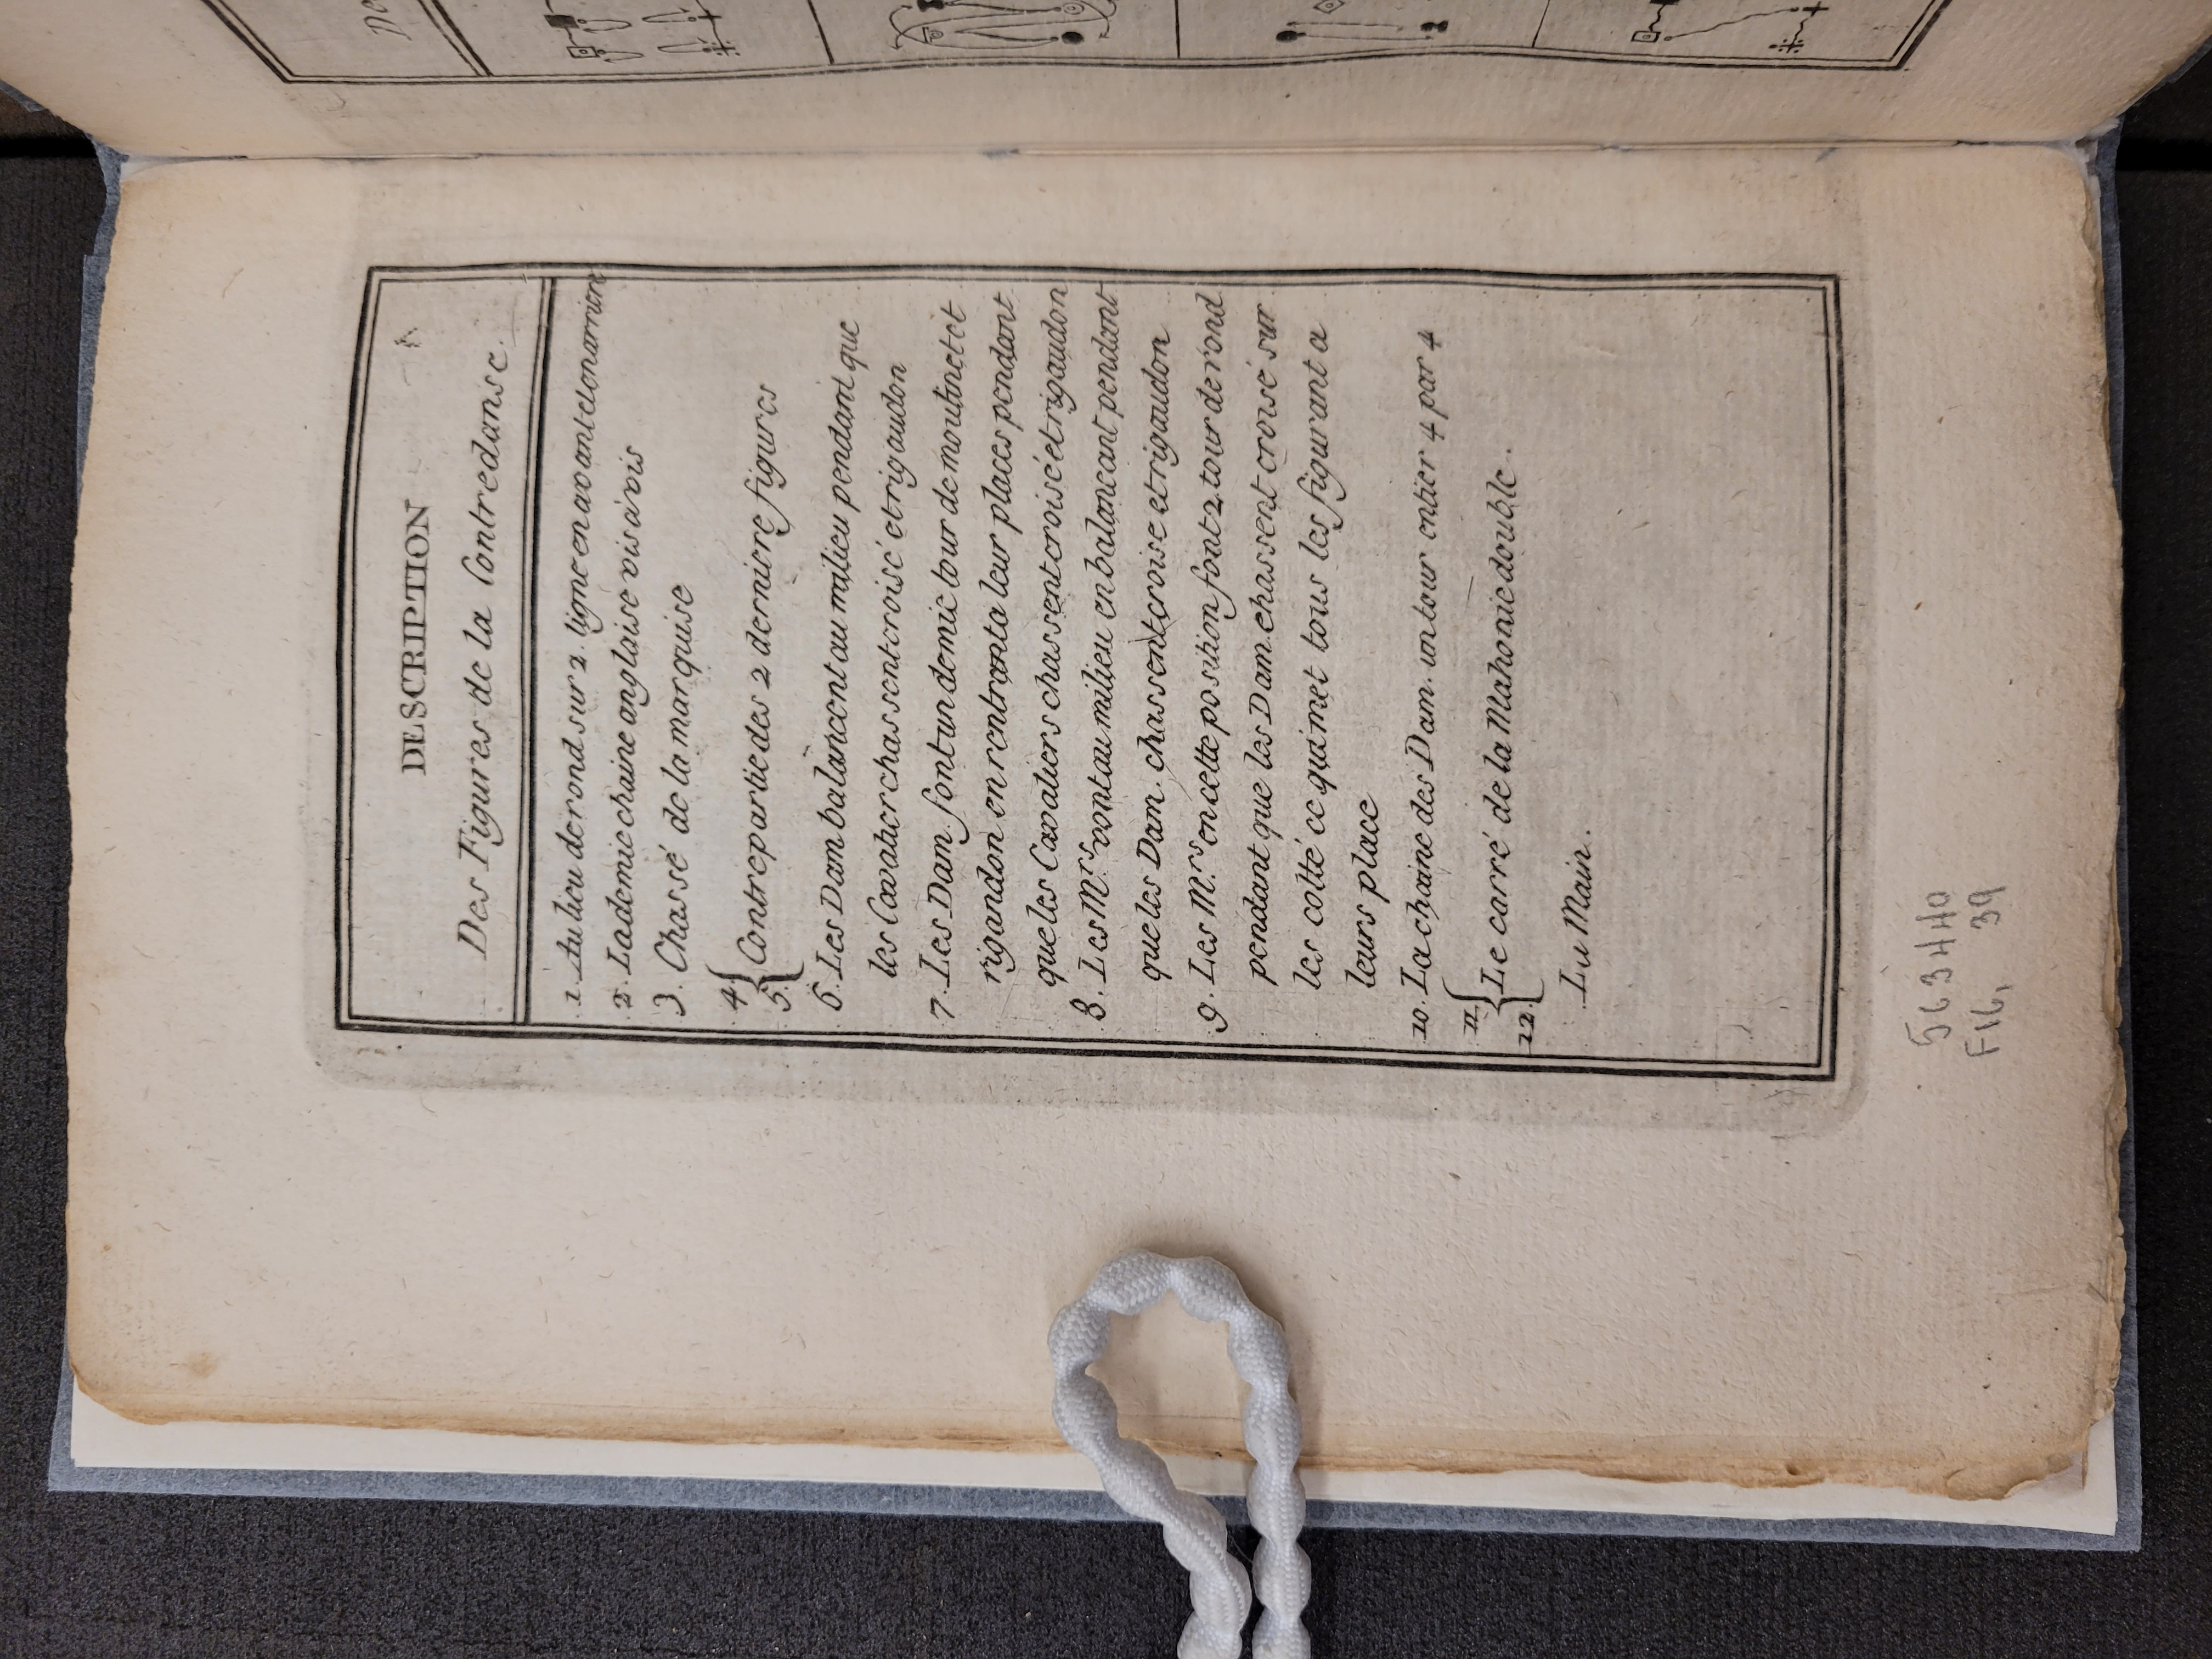 DESCRIPTION
Des Figures de la Contredanse.
1. Au lieu de rond sur 2. ligne en avant et en arriere
2. La demie chaine anglaise vis a vis
3. Chassé de la marquise
4. 5. { Contrepartie des 2 derniere figures
6. Les Dam balancent au milieu pendant que
les Cavalier chassent croisé et rigaudon
7. Les Dam. font un demie tour de moulinet et
rigaudon en rentrant a leur places pendant
que les Cavaliers chassent croisé et rigaudon
8. Les M.rs vont au milieu en balancant pendant
que les Dam. chassent croise et rigaudon
9. Les M.rs en cette position font 2 tour de rond
pendant que les Dam. chassent croisé sur
les coltté ce qui met tous les figurant a
leurs place
10. La chaine des Dam. un tour entier 4 par 4
11. 12. { Le carré de la Mahonie double.
La Main.
563440
F16, 39